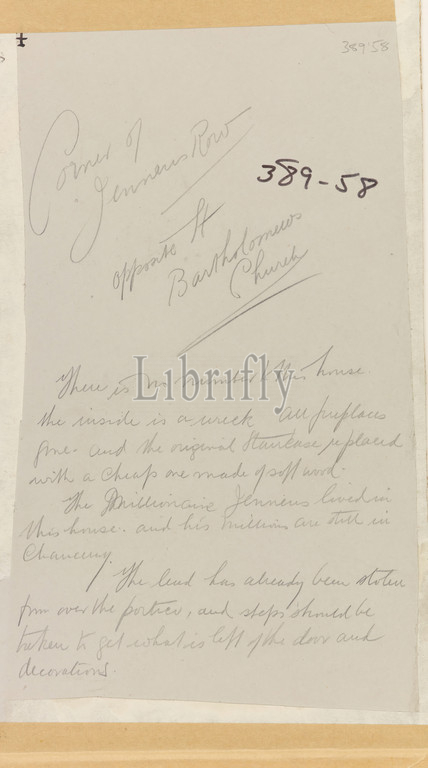 389'58
Corner of
Jennens Row
389-58
opposite St
Bartholomews
Church
Librifly
There is no number to this house
the inside is a wreck all fireplaces
gone. and the original staircase replaced
with a cheap one made of soft wood.
The Millionaire Jennens lived in
this house. and his millions are still in
Chancery.
The lead has already been stolen
from over the portico, and steps should be
taken to get what is left of the door and
decorations.